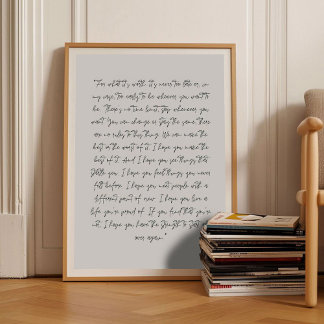 "For what it's worth: it's never too late or, in
my case, too early to be whoever you want to
be. There's no time limit, stop whenever you
want. You can change or stay the same, there
are no rules to this thing. We can make the
best or the worst of it. I hope you make the
best of it. And I hope you see things that
startle you. I hope you feel things you never
felt before. I hope you meet people with a
different point of view. I hope you live a
life you're proud of. If you find that you're
not, I hope you have the strength to start
over again."